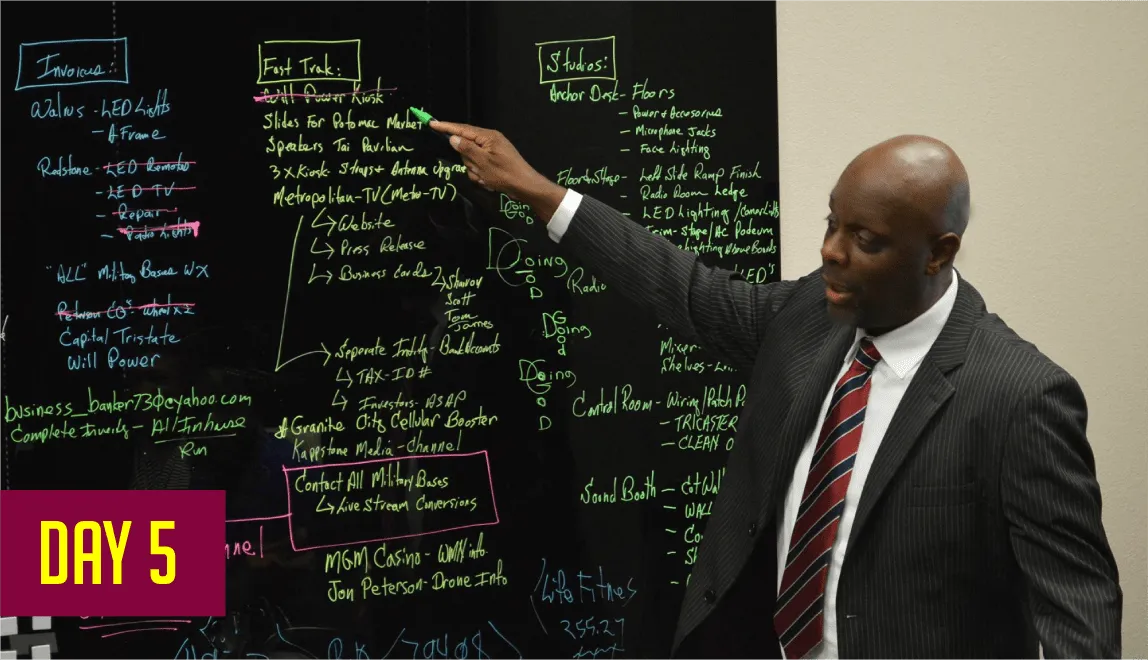 Invoices:
Walrus - LED Lights
- A Frame
Redstone - LED Remotes
- LED TV
- Repair
- Radio Lights
"ALL" Military Bases WX
Capital Tristate
Will Power
business_banker73@yahoo.com
All Inhouse
Run
nnel
DAY 5
Fast Trak:
Will Power Kiosk
Slides For Potomac Market
Speakers Tai Pavilian
3 X Kiosk Straps + Antenna Upgrade
Metropolitan-TV (Metro-TV)
↳ Website
↳ Press Release
↳ Business Cards
↳ Sharov
Scott
Tom
James
Seperate Intity - Bank Accounts
↳ TAX-ID #
↳ Investors - ASAP
Granite City Cellular Booster
Kappstone Media - Channel
Contact All Military Bases
↳ Live Stream Conversions
MGM Casino - WMN info
Jon Peterson - Drone Info
Studios:
Anchor Desk - Floors
- Power & Accessories
- Microphone Jacks
- Face Lighting
Left Side Ramp Finish
- Radio Room Ledge
- LED Lighting
Doing
O
D
Radio
Doing
Doing
O
D
Mixer -
Shelves -
Control Room - Wiring/Patch
- TRICASTER
- CLEAN
Sound Booth -
Life Fitnes
255.27